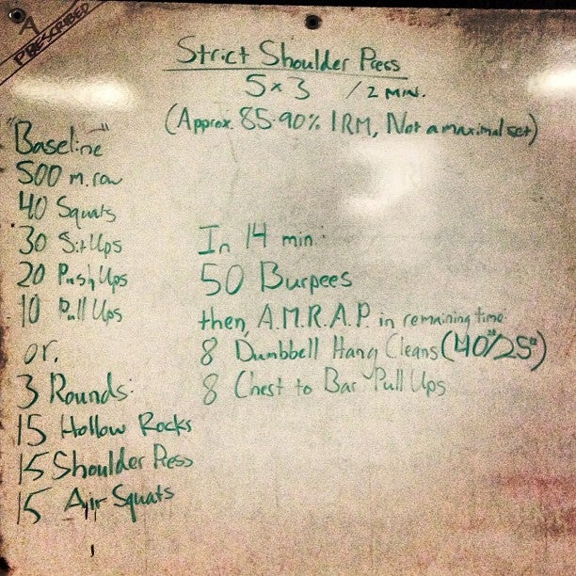 A
PRESCRIBED
Strict Shoulder Press
5x3 /2 MIN.
(Approx. 85-90% 1RM, Not a maximal set)
"Baseline"
500 m. row
40 Squats
30 Sit Ups
20 Push Ups
10 Pull Ups
or,
3 Rounds:
15 Hollow Rocks
15 Shoulder Press
15 Air Squats
In 14 min:
50 Burpees
then, A.M.R.A.P. in remaining time
8 Dumbbell Hang Cleans (40#/25#)
8 Chest to Bar Pull Ups